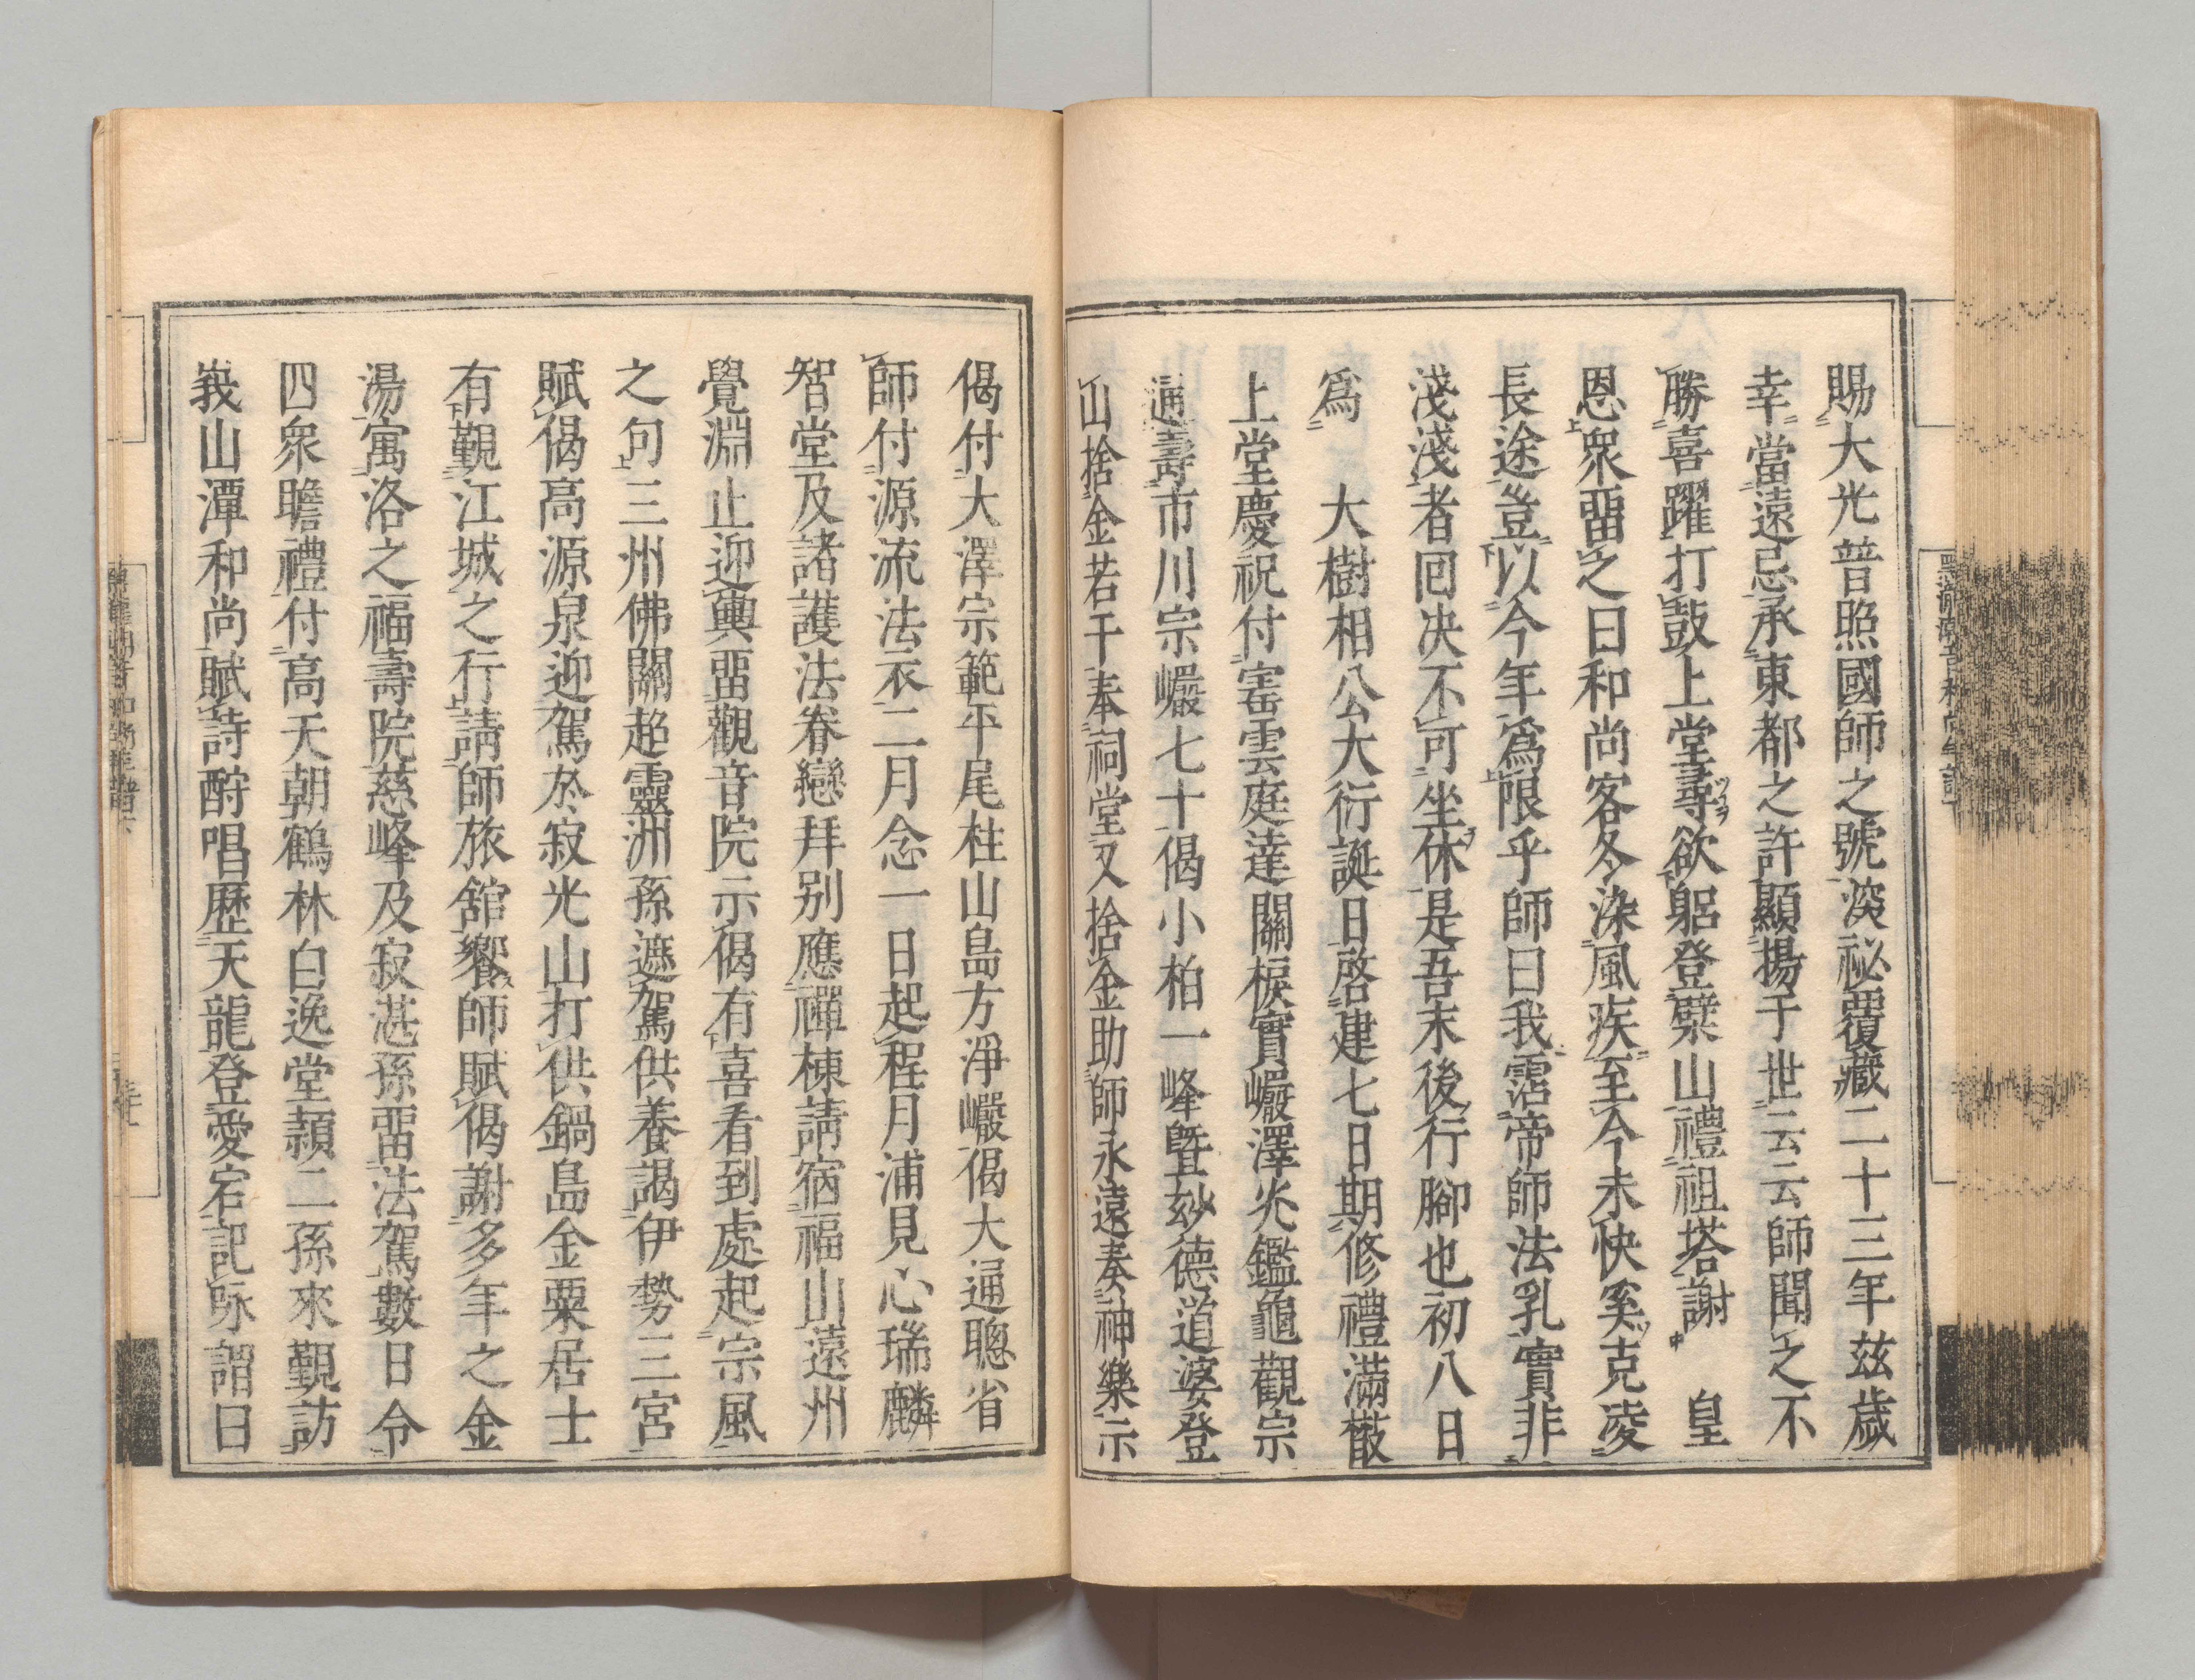 賜大光普照國師之號深祕覆藏二十三年兹歲
幸當遠忌承東都之許顯揚于世云云師聞之不
勝喜躍打鼓上堂尋欲躬登檗山禮祖塔謝 皇
恩衆畱之曰和尚客冬染風疾至今未快奚克凌
長途豈以今年爲限乎師曰我霑帝師法乳實非
淺淺者回决不可坐休是吾末後行腳也初八日
爲 大樹相公大衍誕日啓建七日期修禮滿散
上堂慶祝付窰雲庭達關棙實巗澤光鑑龜觀宗
通壽市川宗巗七十偈小柏一峰曁玅德道婆登
山捨金若干奉祠堂又捨金助師永遠奏神樂示
偈付大澤宗範平尾柱山島方淨巗偈大通聰省
師付源流法衣二月念一日起程月浦見心瑞麟
智堂及諸護法眷戀拜别應禪棟請宿福山遠州
覺淵止迎輿畱觀音院示偈有喜看到處起宗風
之句三州佛關超靈洲孫遮駕供養謁伊勢三宮
賦偈高源泉迎駕於寂光山打供鍋島金粟居士
有觀江城之行請師旅舘饗師賦偈謝多年之金
湯寓洛之福壽院慈峰及寂湛孫畱法駕數日令
四衆瞻禮付高天朝鶴林白逸堂顓二孫來覲訪
峩山潭和尚賦詩酧唱歷天龍登愛宕記咏謂曰